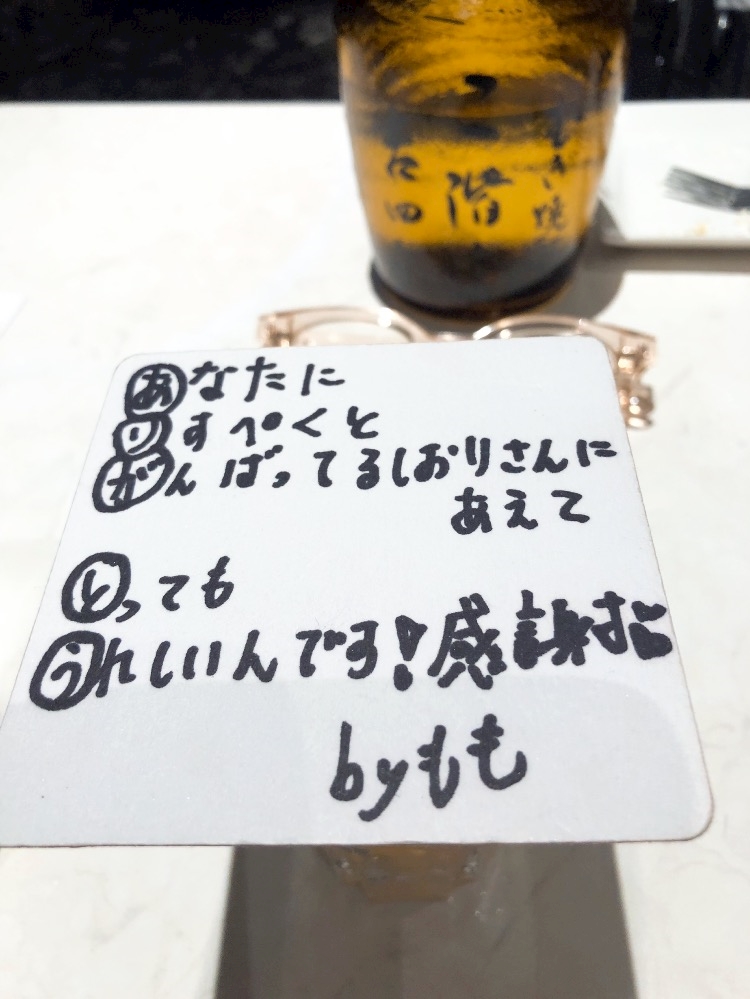 二階
あなたに
りすぺくと
がんばってるしおりさんに
あえて
とっても
うれしいんです!感謝す
byもも